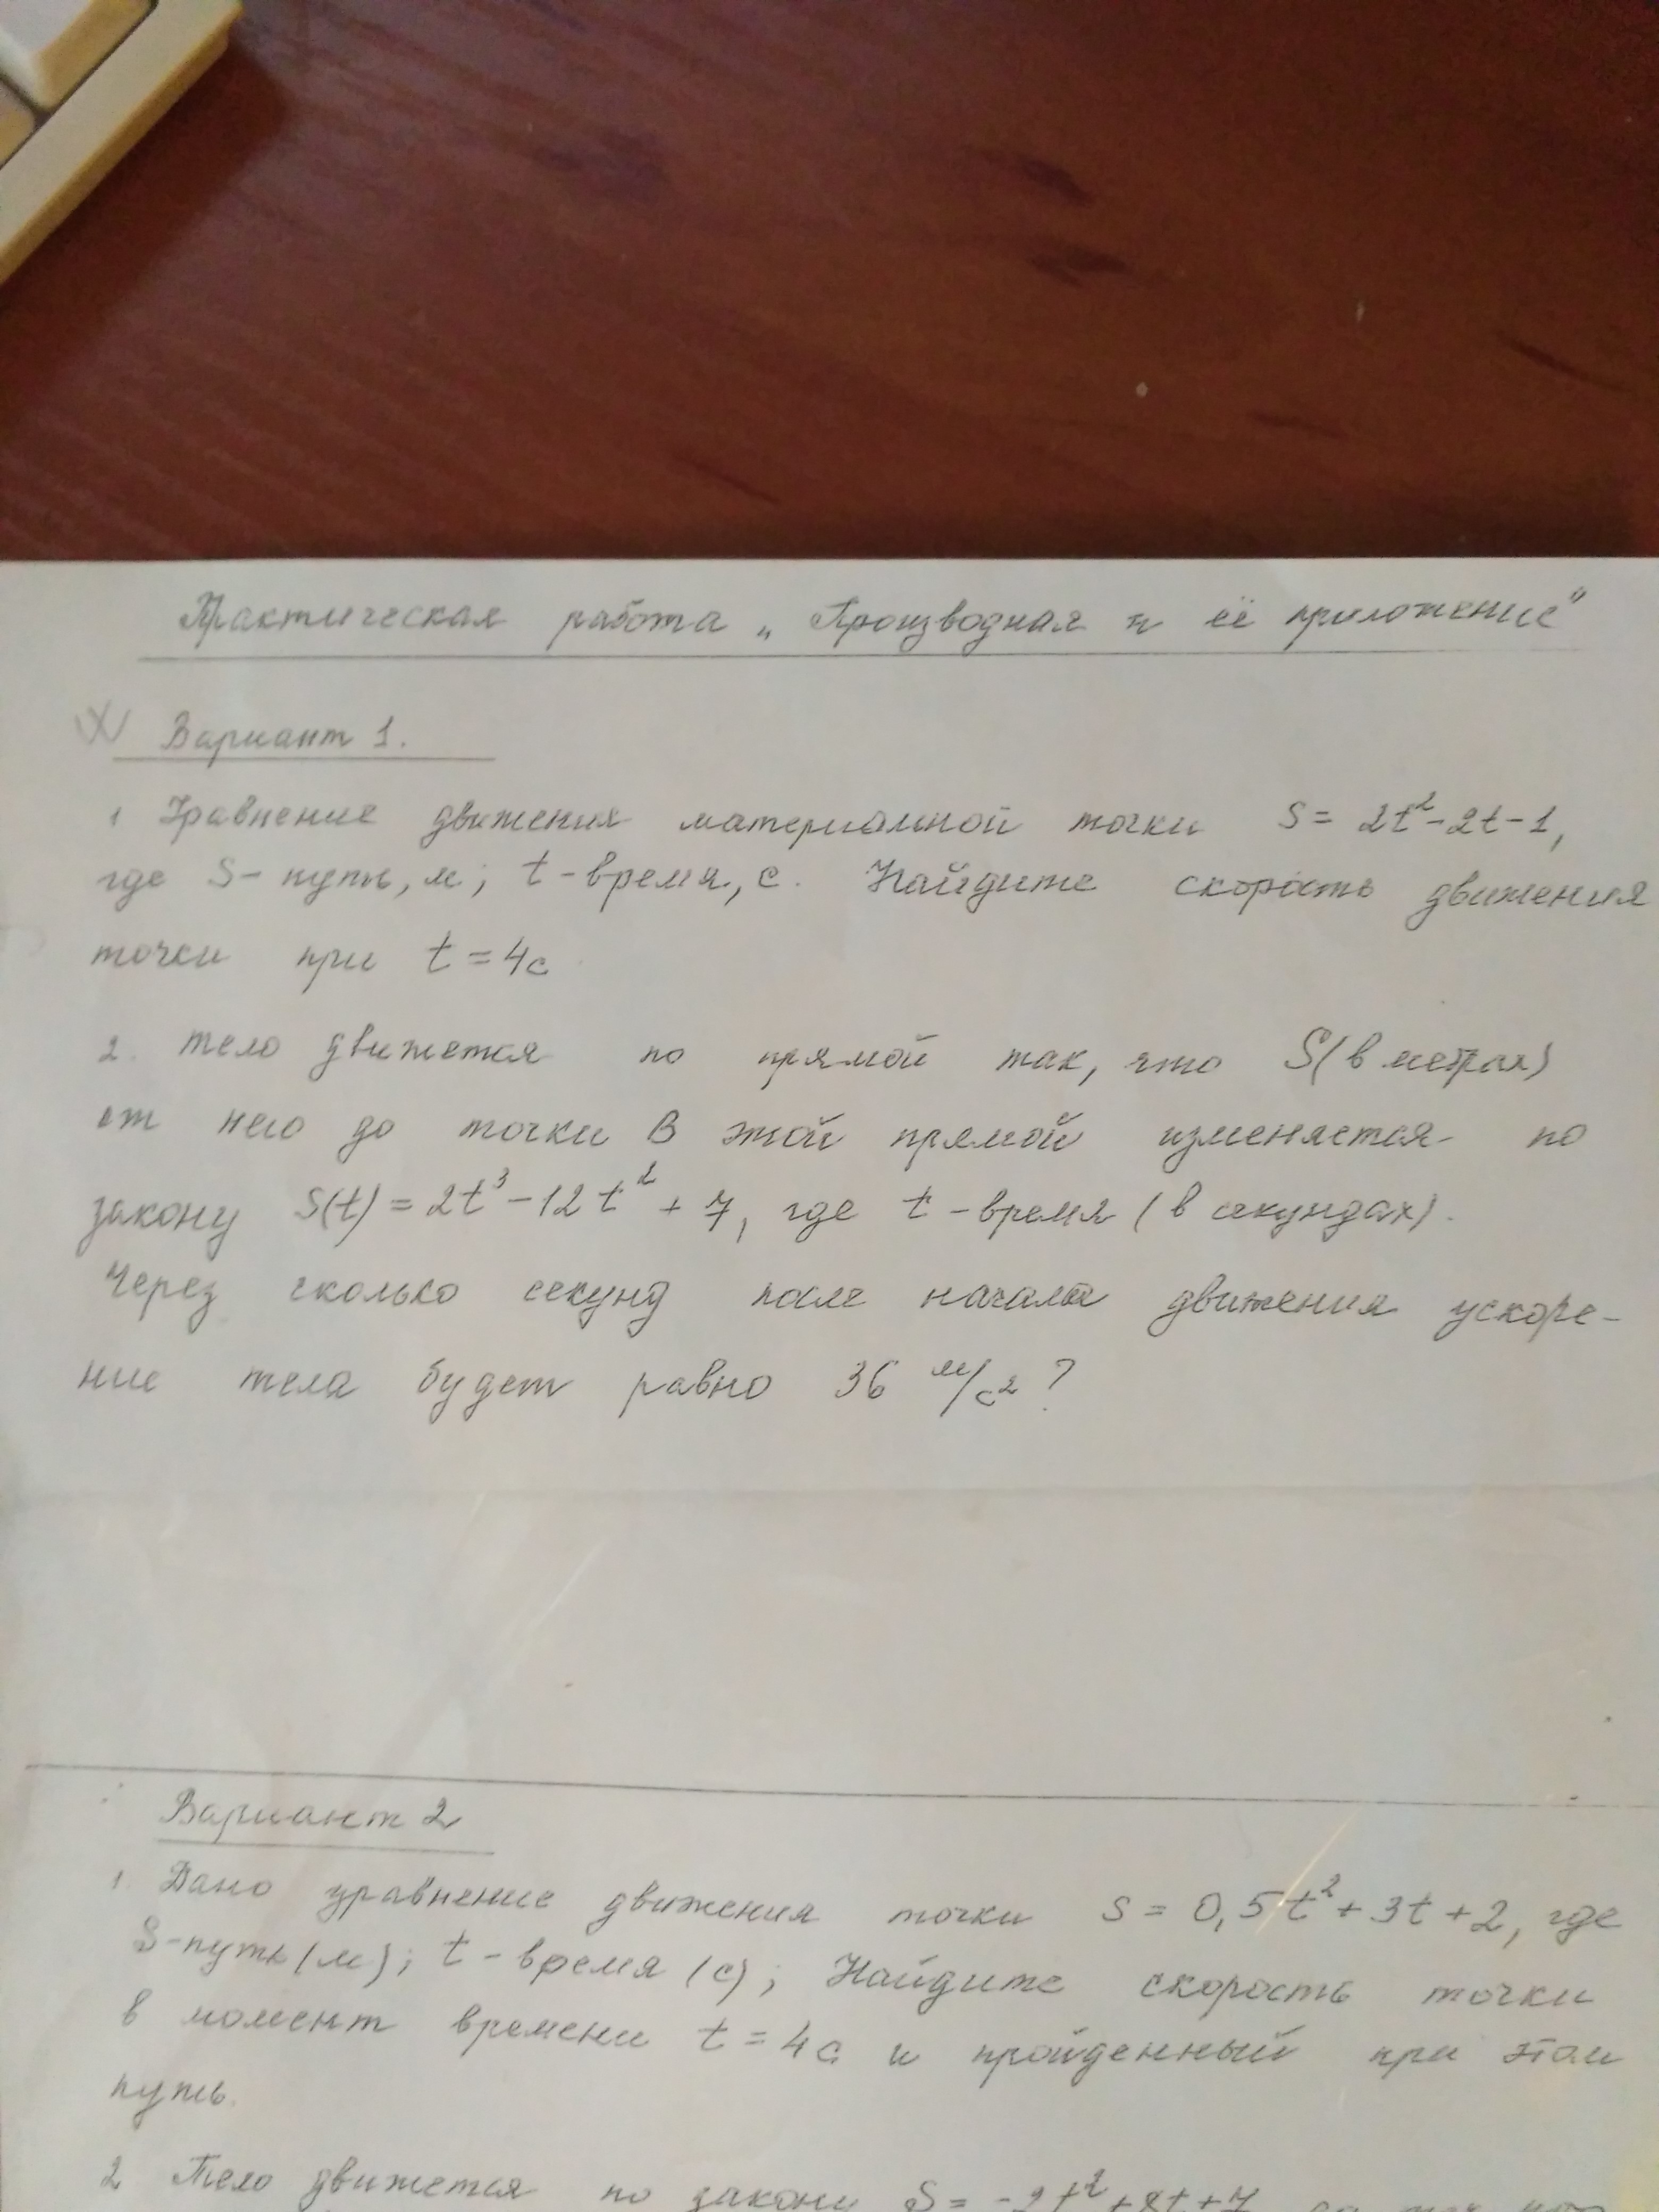 Практическая работа „Производная и её приложение"
Вариант 1.
1 Уравнение движения материальной точки S = 2t²-2t-1,
где S- путь, м; t-время, с. Найдите скорость движения
точки при t=4c
2. Тело движется по прямой так, что S(в метрах)
от него до точки В этой прямой изменяется по
закону S(t)=2t³-12t²+7, где t-время (в секундах).
Через сколько секунд после начала движения ускоре-
ние тела будет равно 36 м/с²?
Вариант 2
1. Дано уравнение движения точки S = 0,5t²+3t+2, где
S-путь(м); t-время (с); Найдите скорость точки
в момент времени t=4c и пройденный при этом
путь.
2 Тело движется по закону S= -2t²+8t+7